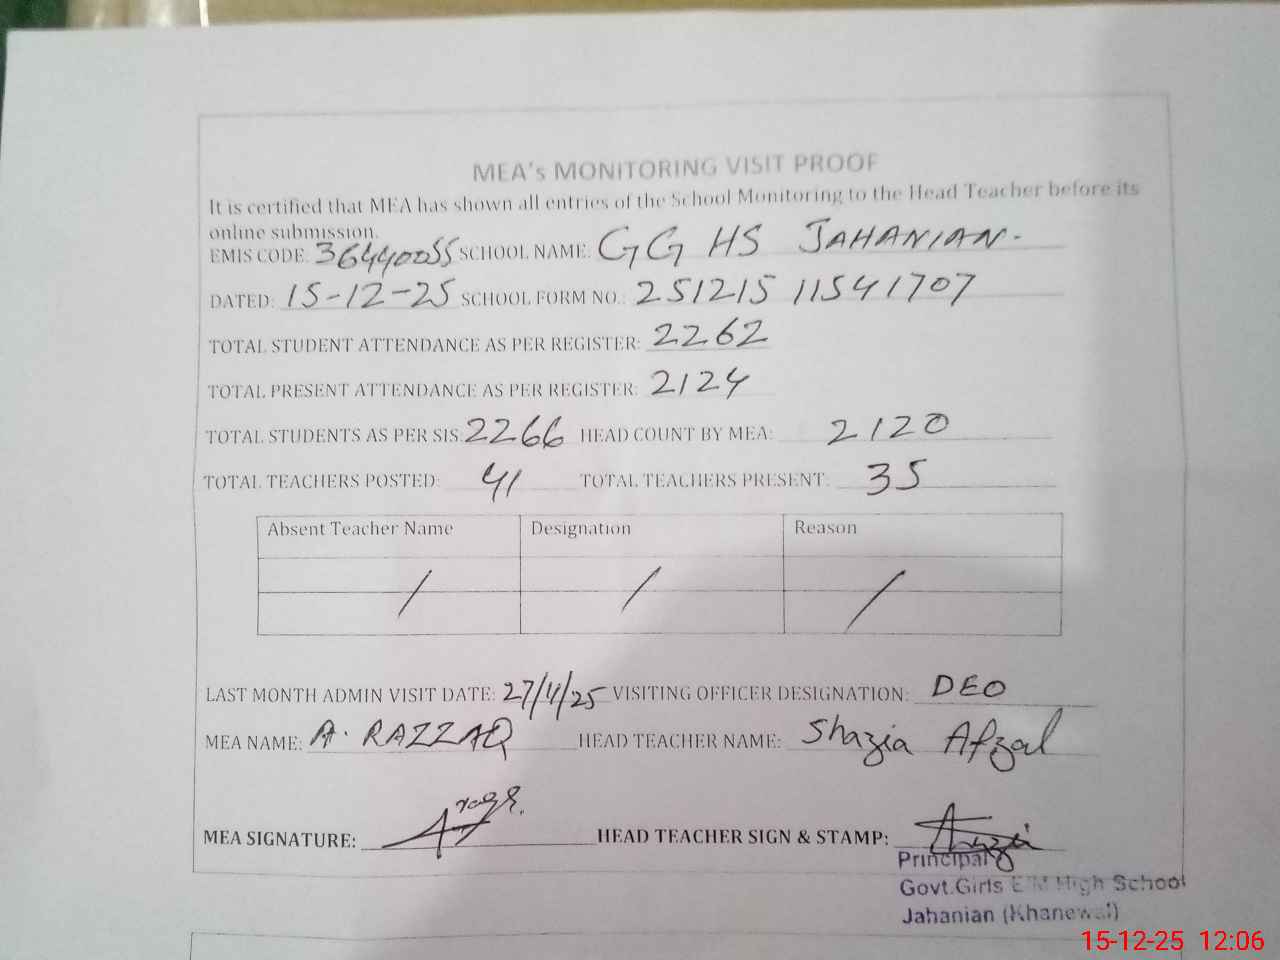 MEA's MONITORING VISIT PROOF
It is certified that MEA has shown all entries of the School Monitoring to the Head Teacher before its
online submission.
EMIS CODE: 36440055 SCHOOL NAME: GG HS JAHANIAN.
DATED: 15-12-25 SCHOOL FORM NO.: 251215 11541707
TOTAL STUDENT ATTENDANCE AS PER REGISTER: 2262
TOTAL PRESENT ATTENDANCE AS PER REGISTER: 2124
TOTAL STUDENTS AS PER SIS: 2266 HEAD COUNT BY MEA: 2120
TOTAL TEACHERS POSTED: 41 TOTAL TEACHERS PRESENT: 35
Absent Teacher Name Designation Reason
/ / /
LAST MONTH ADMIN VISIT DATE: 27/4/25 VISITING OFFICER DESIGNATION: DEO
MEA NAME: A. RAZZAQ HEAD TEACHER NAME: Shazia Afzal
MEA SIGNATURE: HEAD TEACHER SIGN & STAMP:
Principal
Govt.Girls E/M High School
Jahanian (Khanewal)
15-12-25 12:06